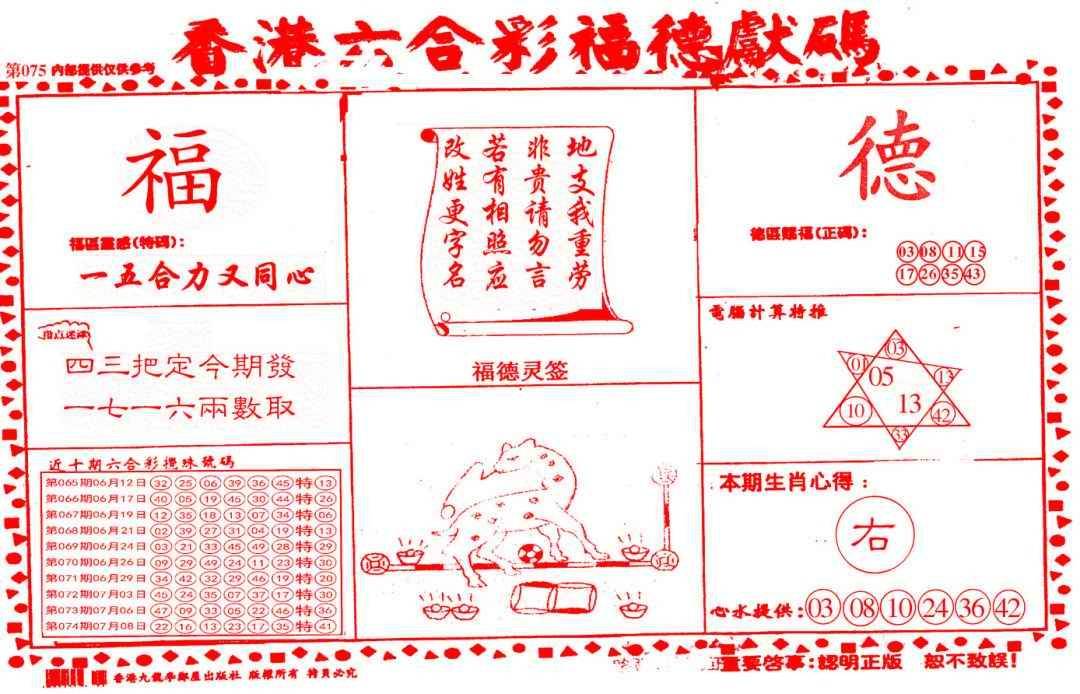 香港六合彩福德獻碼
第075 內部提供仅供参考
福
福區靈感(特碼):
一五合力又同心
指点迷津
四三把定今期發
一七一六兩數取
近十期六合彩攪珠號碼
第065期06月12日 32 25 06 39 36 45 特 13
第066期06月17日 40 05 19 45 30 44 特 26
第067期06月19日 12 35 18 13 07 34 特 06
第068期06月21日 02 39 27 31 04 19 特 13
第069期06月24日 03 21 33 45 49 28 特 29
第070期06月26日 09 29 49 24 11 23 特 30
第071期06月29日 34 42 32 29 46 19 特 20
第072期07月03日 24 35 07 37 17 特 30
第073期07月06日 47 09 33 05 22 46 特 36
第074期07月08日 22 16 13 23 17 35 特 41
地支我重劳
非貴请勿言
若有相照应
改姓更字名
福德灵签
德
德區賜福(正碼):
03 08 11 15
17 26 35 43
電腦計算特推
03
01 05 13
10 13 42
33
本期生肖心得:
右
心水提供: 03 08 10 24 36 42
香港九龍學鄰屋出版社 版權所有 特員必究
重要啓事:認明正版 恕不致誤!